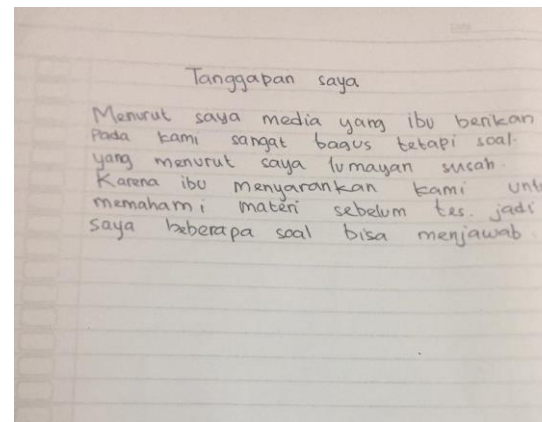 Tanggapan saya
Menurut saya media yang ibu berikan
Pada kami sangat bagus tetapi soal.
yang menurut saya lumayan susah.
Karena ibu menyarankan kami unt
memahami materi sebelum tes. jadi
saya beberapa soal bisa menjawab